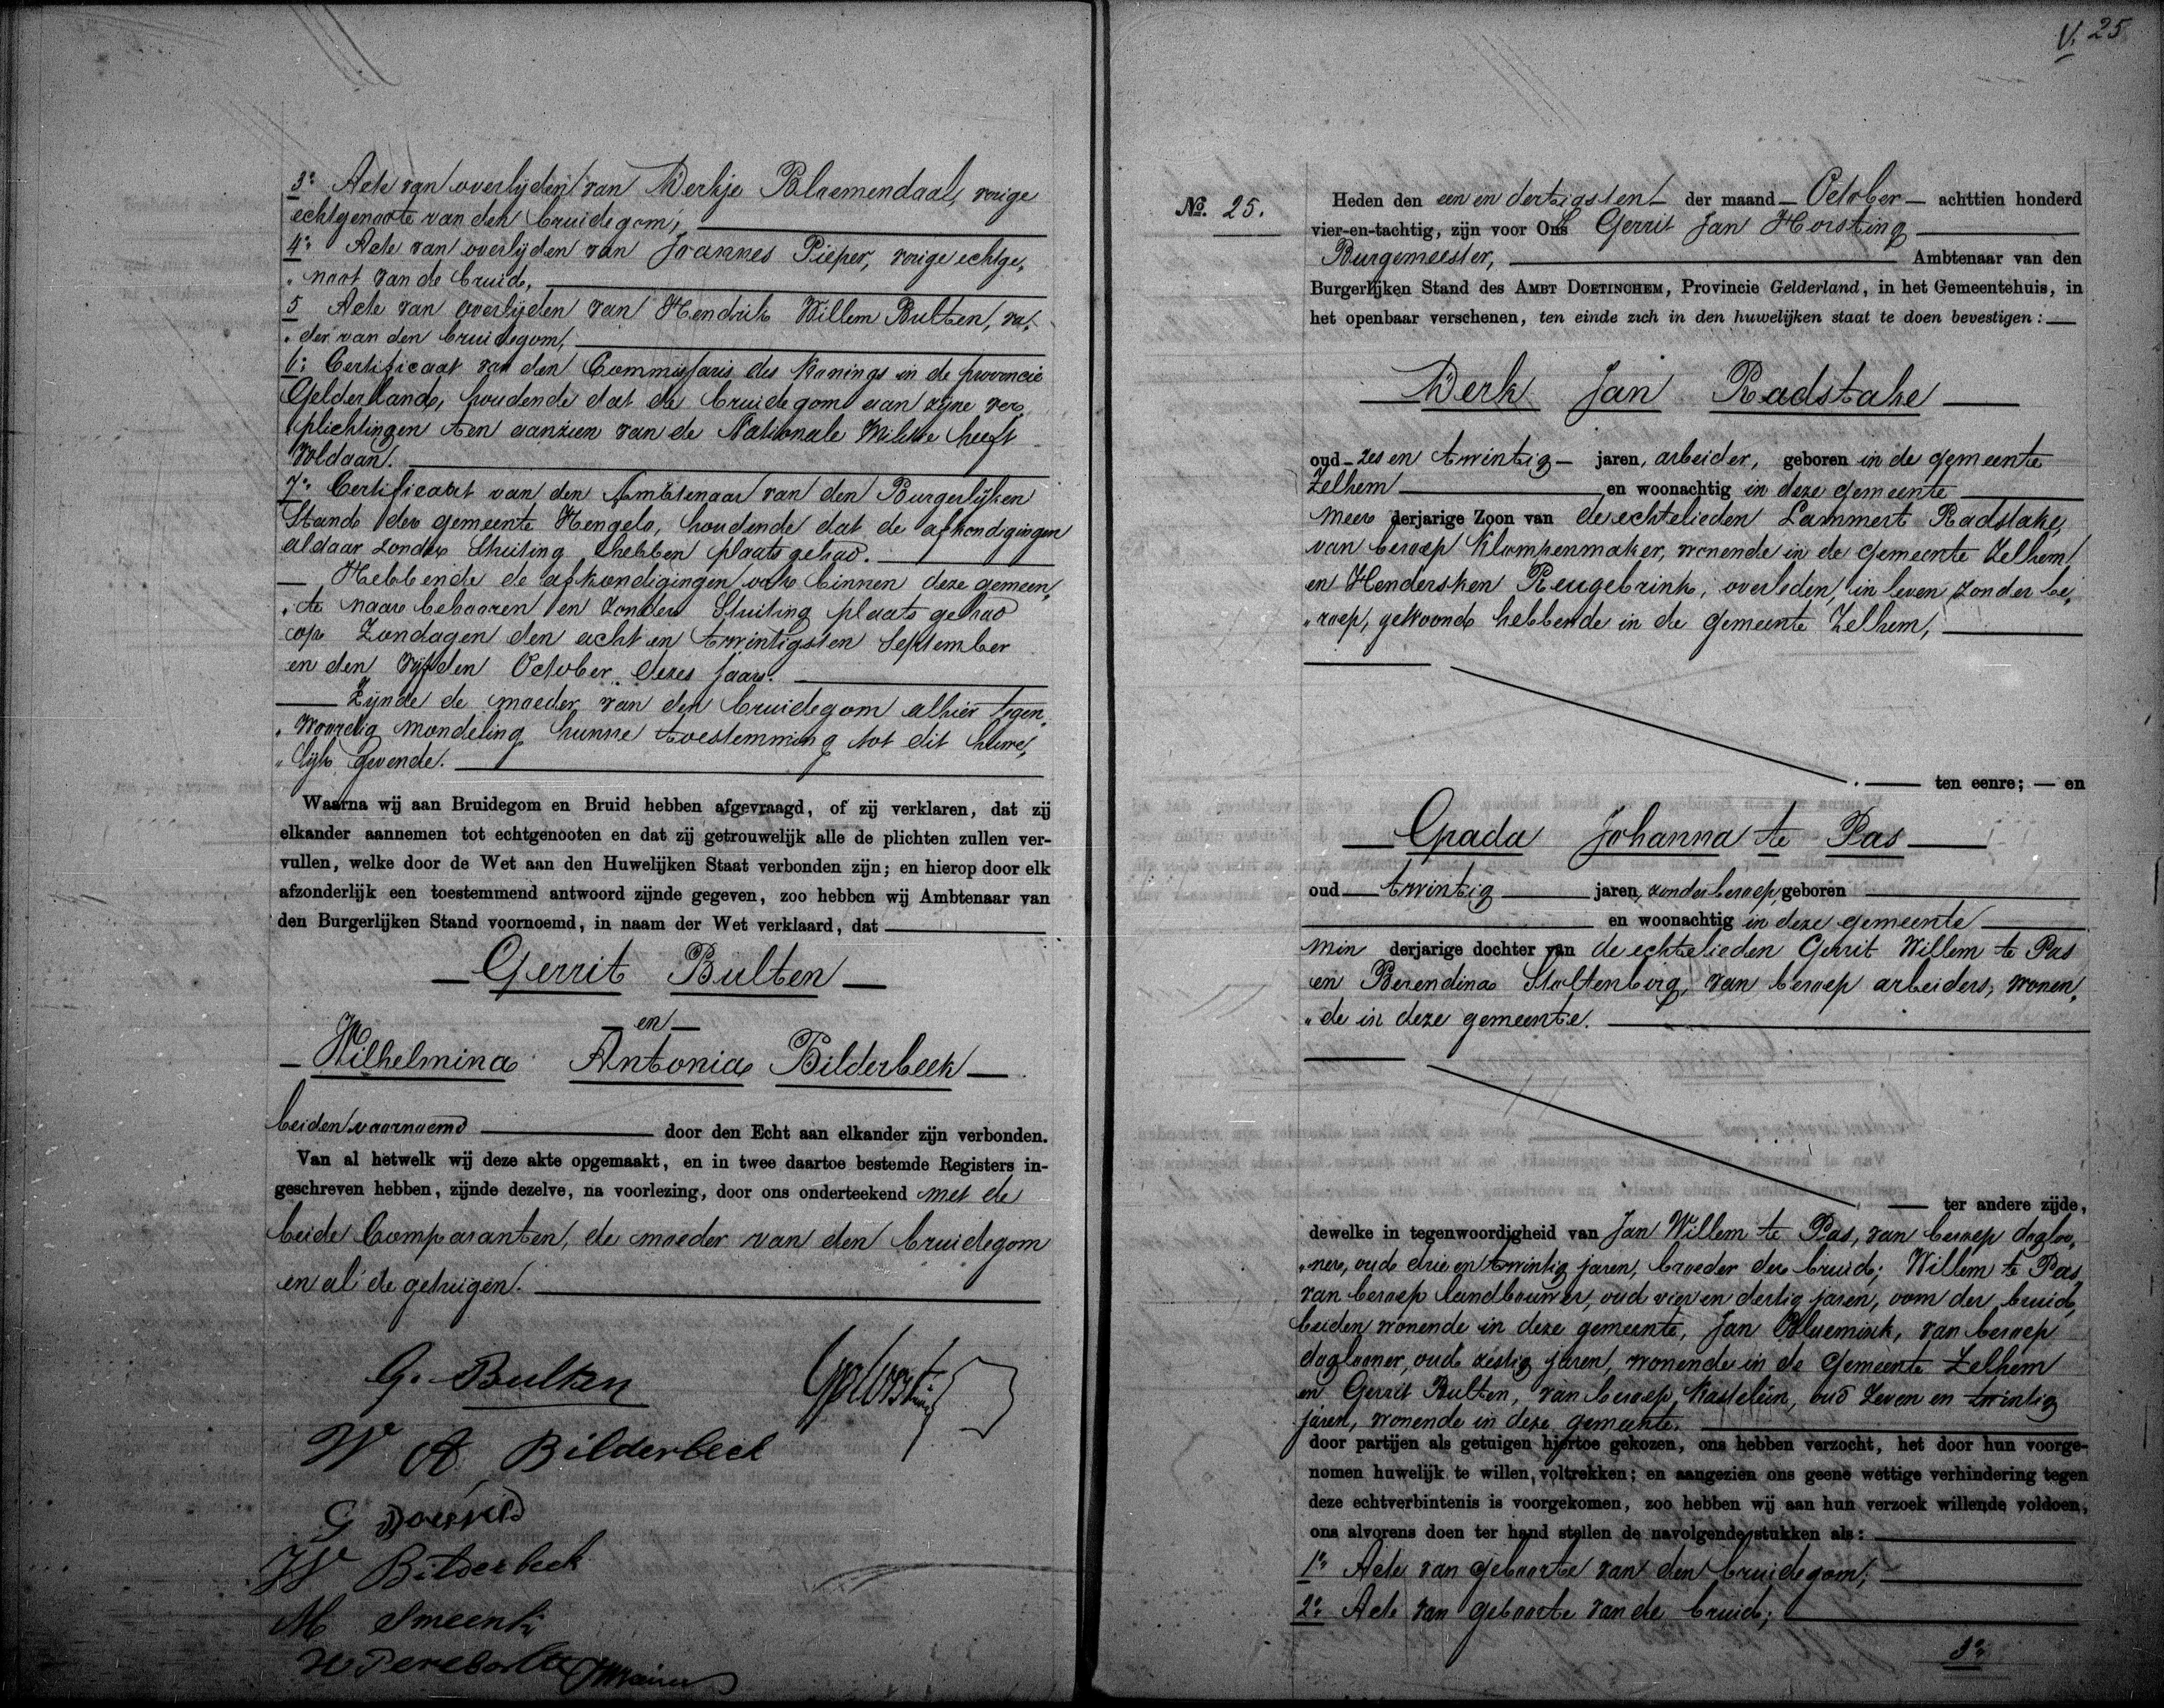 3o Acte van overlijden van Derkje Bloemendaal, vorige
echtgenoote van den bruidegom;
4o Acte van overlijden van Joannes Pieper, vorige echtge„
„noot van de bruid,
5 Acte van overlijden van Hendrik Willem Bulten, va„
„der van den bruidegom,
6o Certificaat van den Commissaris des Konings in de provincie
Gelderland, houdende dat de bruidegom aan zijne ver„
plichtingen ten aanzien van de Nationale Militie heeft
voldaan.
7o Certificaat van den Ambtenaar van den Burgerlijken
Stand der gemeente Hengelo, houdende dat de afkondigingen
aldaar zonder Stuiting hebben plaats gehad.
— Hebbende de afkondigingen ook binnen deze gemeen„
„te naar behooren en zonder Stuiting plaats gehad
op Zondagen den acht en twintigsten September
en den vijfden October dezes jaars.
— Zijnde de moeder van den bruidegom alhier tegen„
„woordig mondeling hunne toestemming tot dit huwe„
„lijk gevende.
Waarna wij aan Bruidegom en Bruid hebben afgevraagd, of zij verklaren, dat zij
elkander aannemen tot echtgenooten en dat zij getrouwelijk alle de plichten zullen ver-
vullen, welke door de Wet aan den Huwelijken Staat verbonden zijn; en hierop door elk
afzonderlijk een toestemmend antwoord zijnde gegeven, zoo hebben wij Ambtenaar van
den Burgerlijken Stand voornoemd, in naam der Wet verklaard, dat
— Gerrit Bulten —
— en —
— Wilhelmina Antonia Bilderbeek —
beiden voornoemd door den Echt aan elkander zijn verbonden.
Van al hetwelk wij deze akte opgemaakt, en in twee daartoe bestemde Registers in-
geschreven hebben, zijnde dezelve, na voorlezing, door ons onderteekend met de
beide Comparanten, de moeder van den bruidegom
en al de getuigen.
G. Bulten
W A Bilderbeek
W Bilderbeek
M Smeenk
V. 25
No. 25.
Heden den een en dertigsten — der maand — October — achttien honderd
vier-en-tachtig, zijn voor Ons Gerrit Jan Horsting
Burgemeester, Ambtenaar van den
Burgerlijken Stand des AMBT DOETINCHEM, Provincie Gelderland, in het Gemeentehuis, in
het openbaar verschenen, ten einde zich in den huwelijken staat te doen bevestigen: —
— Derk Jan Radstake —
oud — zes en twintig — jaren, arbeider, geboren in de gemeente
Zelhem en woonachtig in deze gemeente
meer derjarige Zoon van de echtelieden Lammert Radstake,
van beroep Klompenmaker, wonende in de gemeente Zelhem,
en Hendersken Reugebrink, overleden, in leven zonder be„
„roep, gewoond hebbende in de gemeente Zelhem,
— ten eenre; — en
— Grada Johanna te Pas —
oud — twintig — jaren, zonder beroep, geboren
en woonachtig in deze gemeente
min derjarige dochter van de echtelieden Gerrit Willem te Pas
en Berendina Stoltenberg, van beroep arbeiders, wonen„
„de in deze gemeente.
— ter andere zijde,
dewelke in tegenwoordigheid van Jan Willem te Pas, van beroep dagloo„
„ner, oud drie en twintig jaren, broeder der bruid; Willem te Pas,
van beroep landbouwer, oud vier en dertig jaren, oom der bruid,
beiden wonende in deze gemeente, Jan Bluemink, van beroep
daglooner, oud zestig jaren, wonende in de gemeente Zelhem
en Gerrit Bulten, van beroep Kastelein, oud zeven en twintig
jaren, wonende in deze gemeente.
door partijen als getuigen hiertoe gekozen, ons hebben verzocht, het door hun voorge-
nomen huwelijk te willen voltrekken; en aangezien ons geene wettige verhindering tegen
deze echtverbintenis is voorgekomen, zoo hebben wij aan hun verzoek willende voldoen,
ons alvorens doen ter hand stellen de navolgende stukken als:
1o Acte van geboorte van den bruidegom;
2o Acte van geboorte van de bruid;
3o